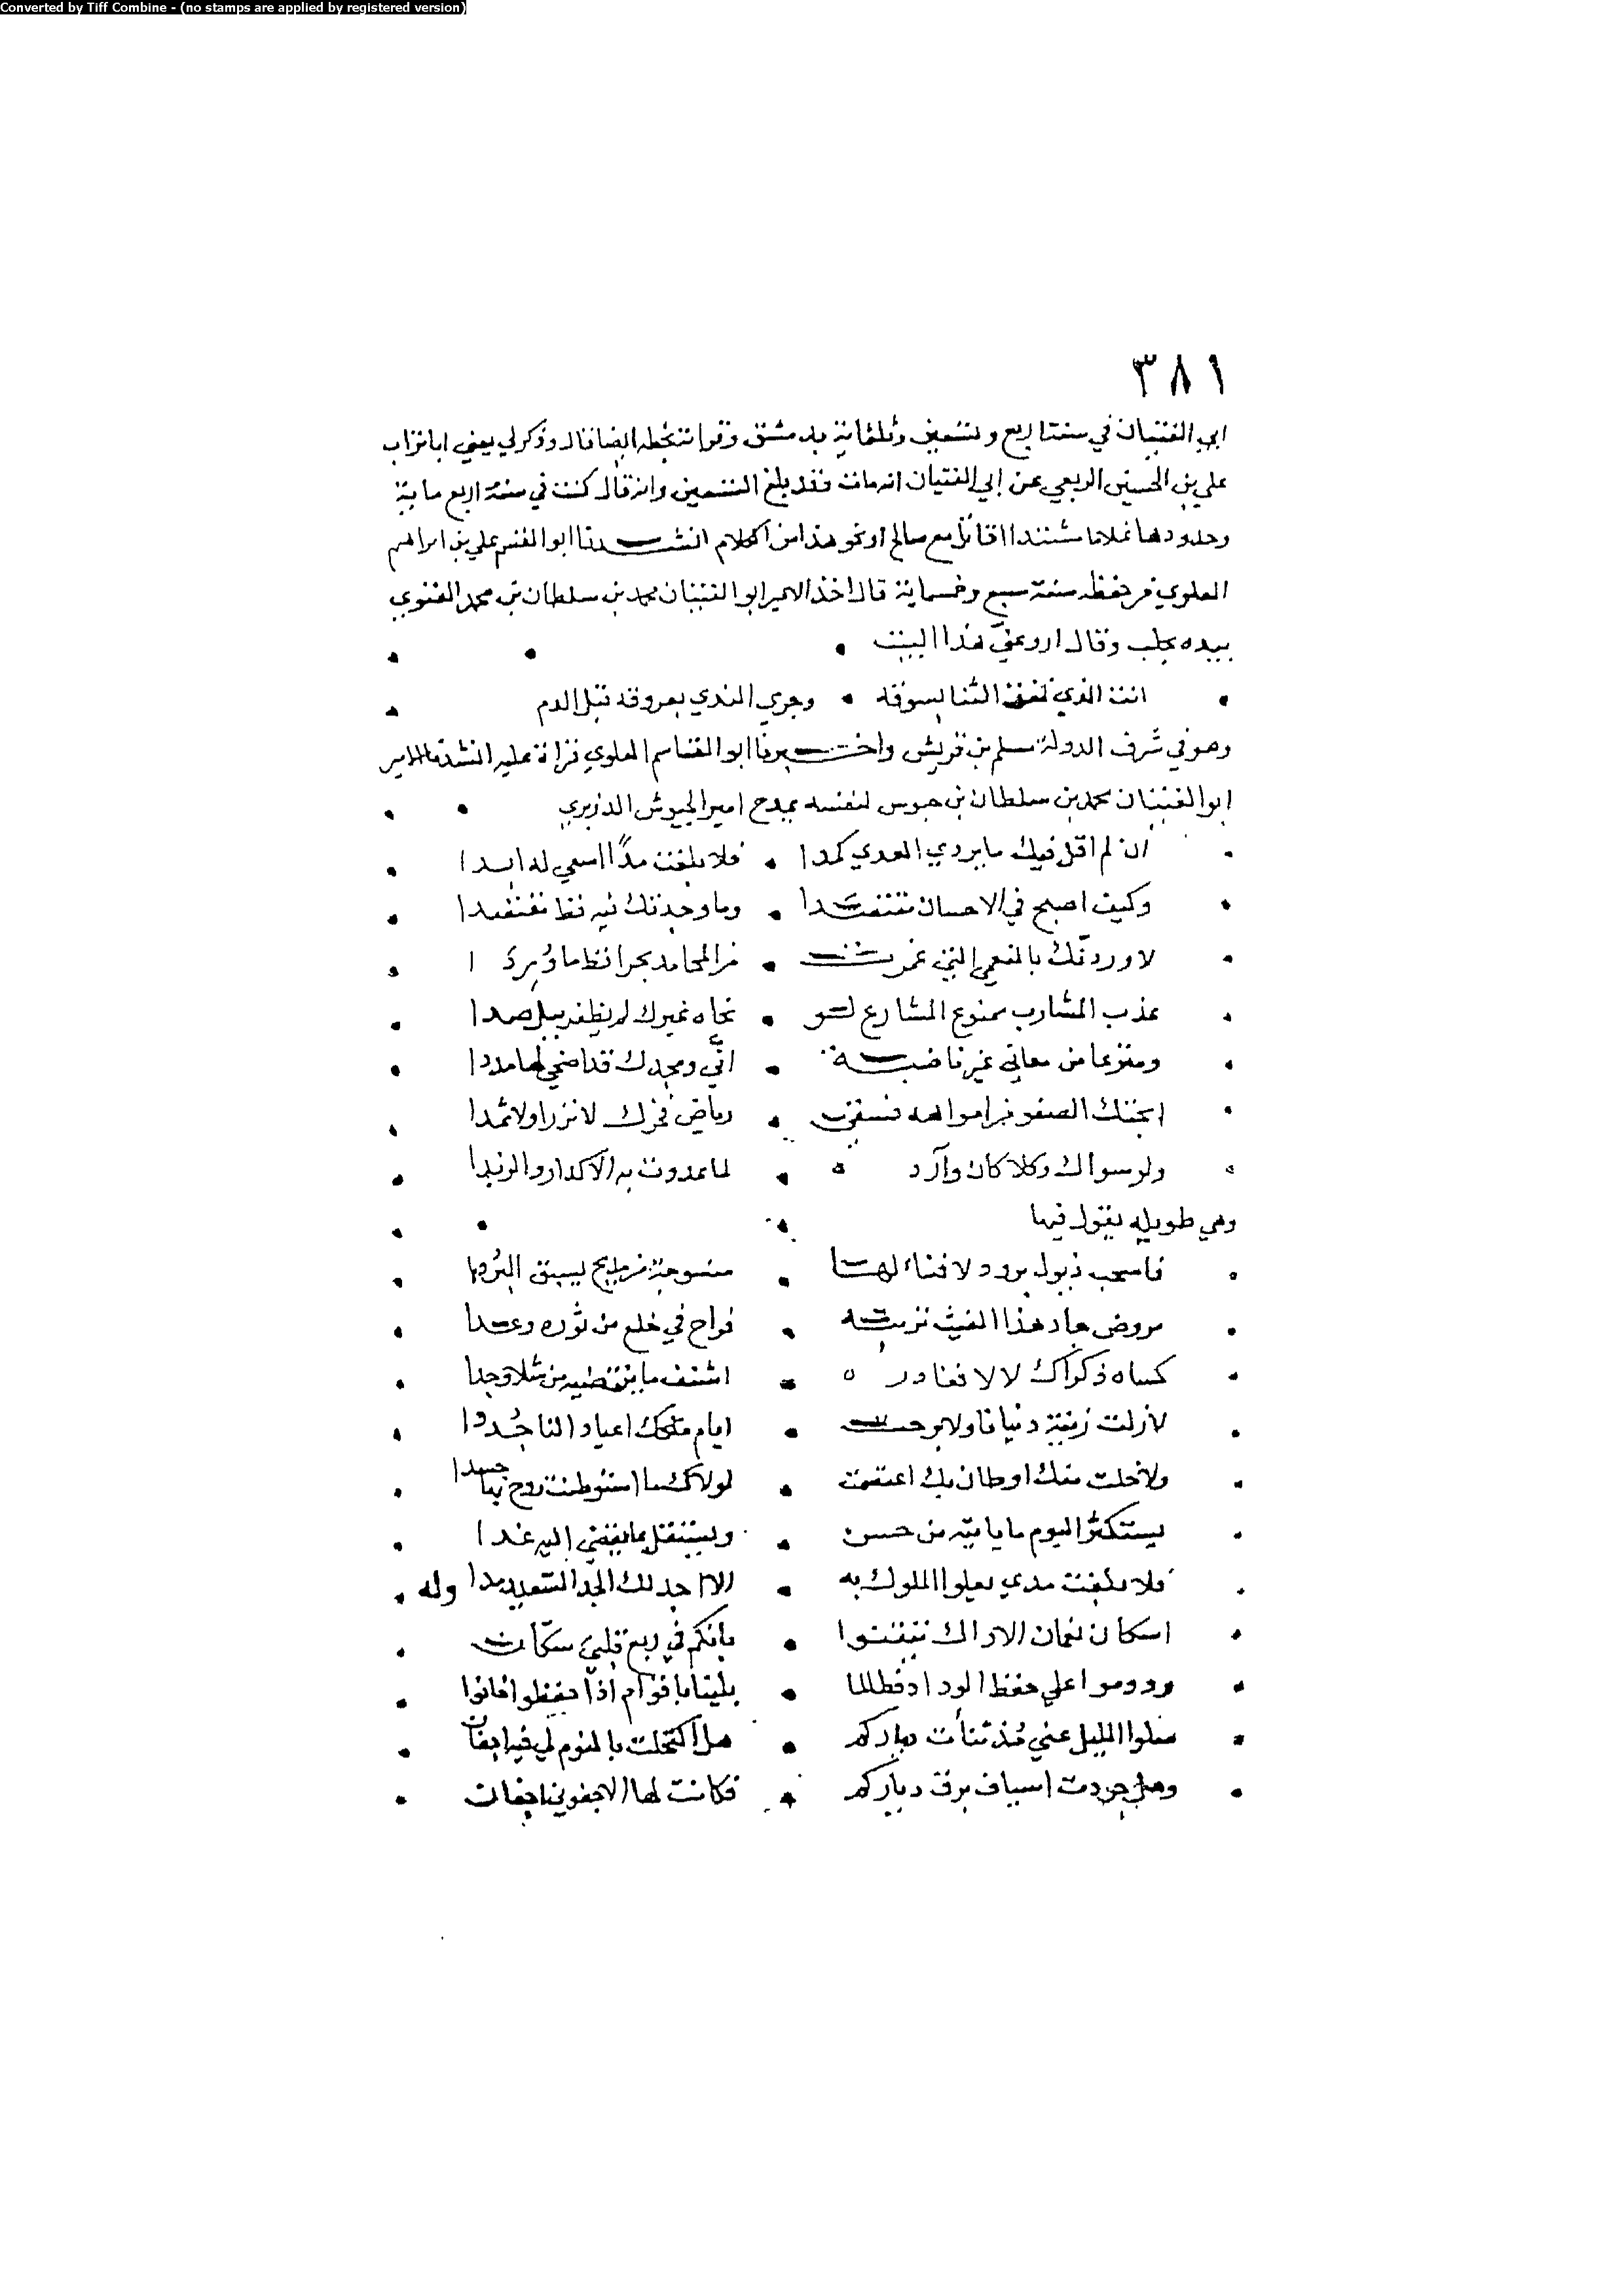 Converted by Tiff Combine - (no stamps are applied by registered version)
٣٨١
ابي الفتيان في سنة اربع وتسعين وثلثماية بدمشق وقرات بخطه ايضا قال وذكر لي يعني ابا تراب
علي بن الحسين الربعي عن ابي الفتيان انه مات وقد بلغ التسعين وانه قال كنت في سنة اربع ماية
وحدودها غلاما مشتدا اقاتل مع صالح او نحو هذا من الكلام انشدنا ابو القسم علي بن ابراهيم
العلوي من حفظه سنة سبع وخمسماية قال اخذ الامير ابو الفتيان محمد بن سلطان بن محمد الغنوي
بيده بحلب وقال ارو عني هذا البيت
انت الذي نفق الثنا بسوقه وجري الندي بعروقه قبل الدم
وهو في شرف الدولة مسلم بن قريش واخبرنا ابو القاسم العلوي قراة عليه انشدنا الامير
ابو الفتيان محمد بن سلطان بن حيوس لنفسه يمدح امير الجيوش الدزبري
ان لم اقل فيك ما يردي العدي كمدا فلا بلغت مدًا اسعي له ابدا
وكيف اصبح في الاحسان مقتصدا وما وجدتك فيه قط مقتصدا
لاوردنّك بالنعمي التي غمرت من المحامد بحرا قط ما وُردَ ا
عذب المشارب ممنوع المشارع لو نحاه غيرك لم يظفر ببل صدا
ومنزعا من معاني غير ناضبة انّي ومجدك قد اضحي لها مددا
ابحتك الصفو من امواهه فسقت رياض فخرك لا نزرا ولا ثمدا
ولو سواك وكلا كان وارد لما عدوت به الاكدار والزبدا
وهي طويلة يقول فيها
فاسحب ذيول برود لا فناء لها منسوجة من مديح يسبق البُردا
مروض جاد هذا الغيث تربته فراح في حلع من نوره وغدا
كساه ذكراك لالا فغادر اشنف ما
لازلت زينة دنيانا ولا برحت ايام ملكك اعيادا لنا جُددا
ولا خلت منك اوطان بك اعتصمت لولاك ما استوطنت روح بها جسدا
يستكثر اليوم ما ياتيه من حسن ويستقل بما يفضي اليه غدا
فلا بلغت مدي يعلوا الملوك به الا اجد لك الجد السعيد مدا وله
اسكان نعمان الاراك تيقنوا بانكم في ربع قلبي سكّان
ودوموا علي حفظ الوداد فطالما بلينا باقوام اذا حفظوا خانوا
سلوا الليل عني مُذ تنأت دياركم هل اكتحلت بالنوم لي فيه اجفان
وهل جردت اسياف برق دياركم فكانت لها الا جفوني اجفان